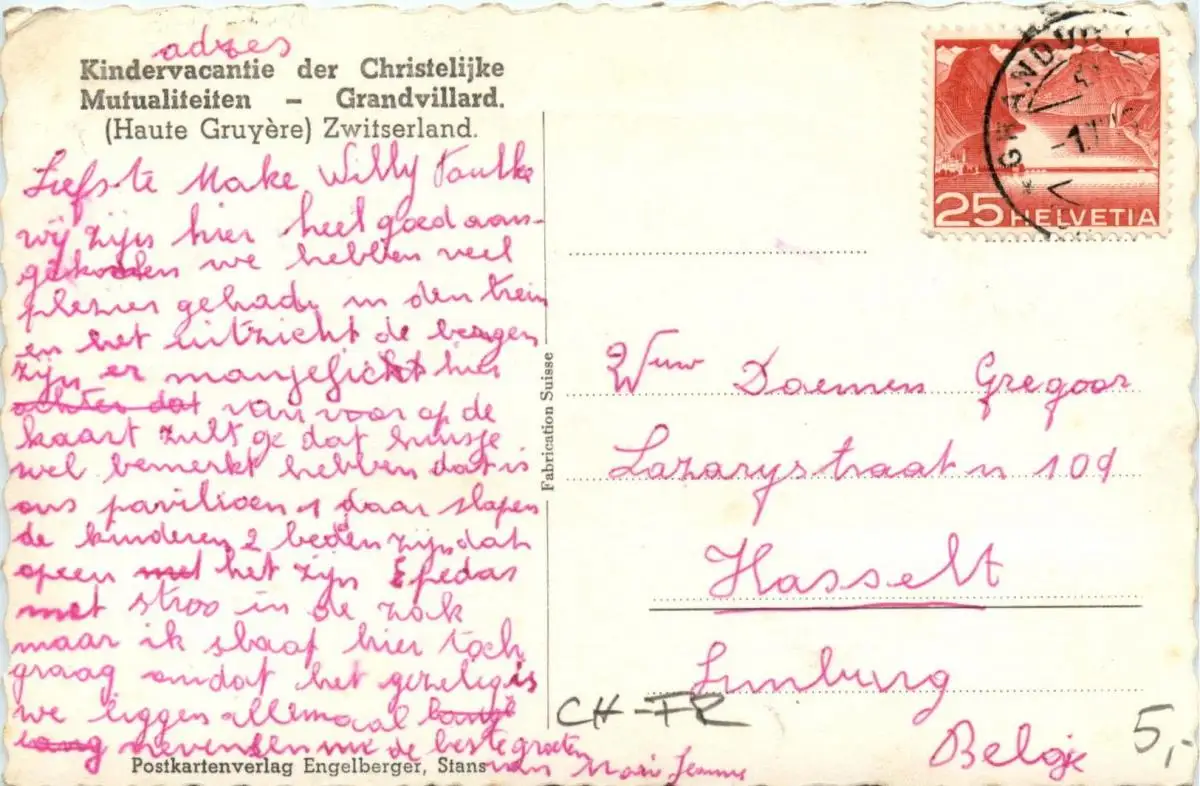 adres
Kindervacantie der Christelijke
Mutualiteiten – Grandvillard.
(Haute Gruyère) Zwitserland.
Liefste Make Willy Paulke
wij zijn hier heel goed aan-
gekomen we hebben veel
plezier gehad in den trein
en het uitzicht de bergen
zijn er manjefickt hier
achter dat van voor op de
kaart zult ge dat huisje
wel bemerkt hebben dat is
ons pavilioen 1 daar slapen
de kinderen 2 bedden zijn dat
opeen met het zijn
met stroo in de zak
maar ik slaap hier toch
graag omdat het gezelig is
we liggen allemaal
lang nevenseen de beste groeten
van Marie Jeanne
Postkartenverlag Engelberger, Stans
Fabrication Suisse
25 HELVETIA
GRANDV
Wuw Daemen Gregoor
Lazarystraat n 109
Hasselt
Limburg
Belgje
CH-FR
5,-